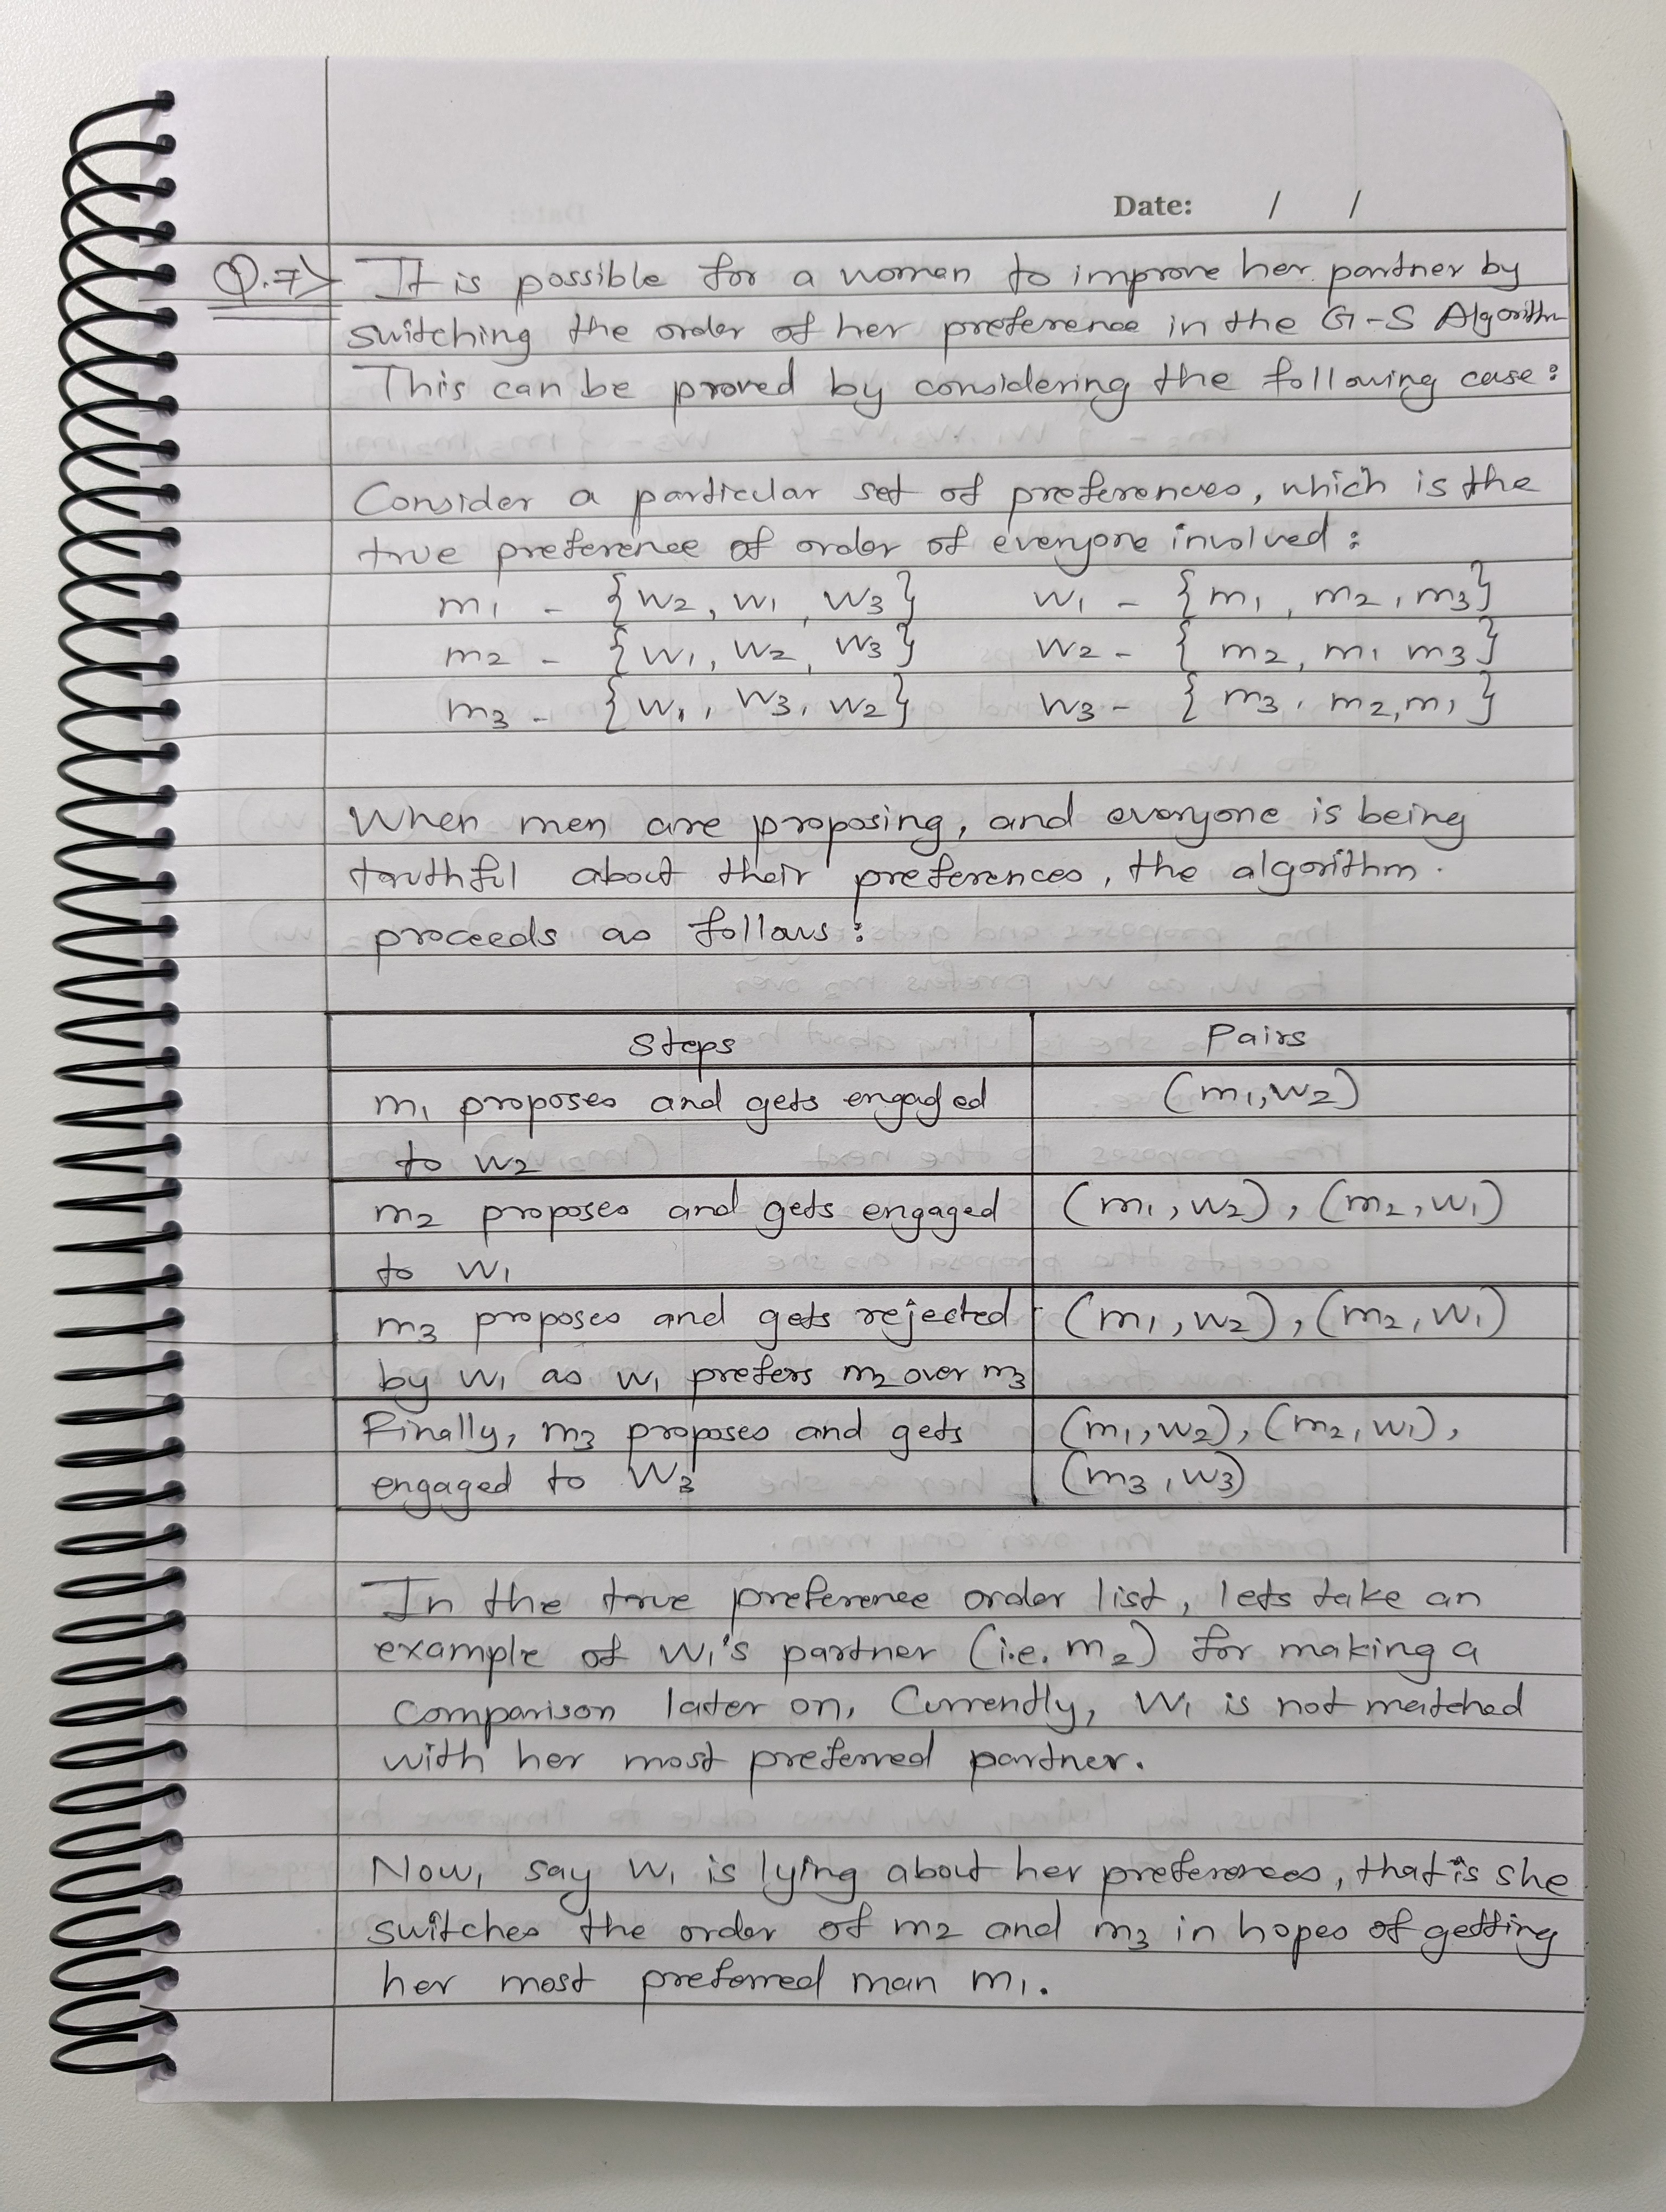 Date: / /
Q.7> It is possible for a woman to improve her partner by
switching the order of her preference in the G-S Algorithm
This can be proved by considering the following case:
Consider a particular set of preferences, which is the
true preference of order of everyone involved:
m1 - {w2, w1, w3} w1 - {m1, m2, m3}
m2 - {w1, w2, w3} w2 - {m2, m1 m3}
m3 - {w1, w3, w2} w3 - {m3, m2, m1}
When men are proposing, and everyone is being
truthful about their preferences, the algorithm.
proceeds as follows:
Steps Pairs
m1 proposes and gets engaged (m1, w2)
to w2
m2 proposes and gets engaged (m1, w2), (m2, w1)
to w1
m3 proposes and gets rejected (m1, w2), (m2, w1)
by w1 as w1 prefers m2 over m3
Finally, m3 proposes and gets (m1, w2), (m2, w1),
engaged to w3 (m3, w3)
In the true preference order list, lets take an
example of w1's partner (i.e. m2) for making a
comparison later on, Currently, w1 is not matched
with her most preferred partner.
Now, say w1 is lying about her preferences, that is she
switches the order of m2 and m3 in hopes of getting
her most preferred man m1.